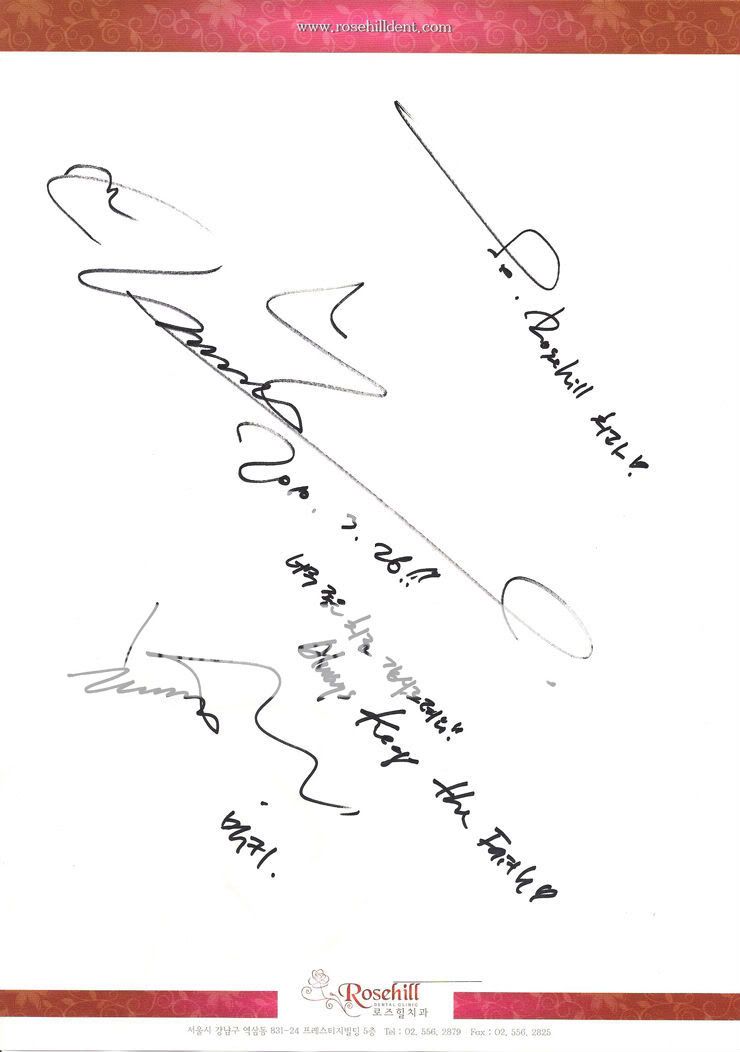 www.rosehilldent.com
To. Rosehill 치과♡
2010. 3. 26!!
치료 감사드려요!!
Always Keep the Faith♡
Rosehill
DENTAL CLINIC
로즈힐치과
서울시 강남구 역삼동 831-24 프레스티지빌딩 5층 Tel : 02. 556. 2879 Fax : 02. 556. 2825